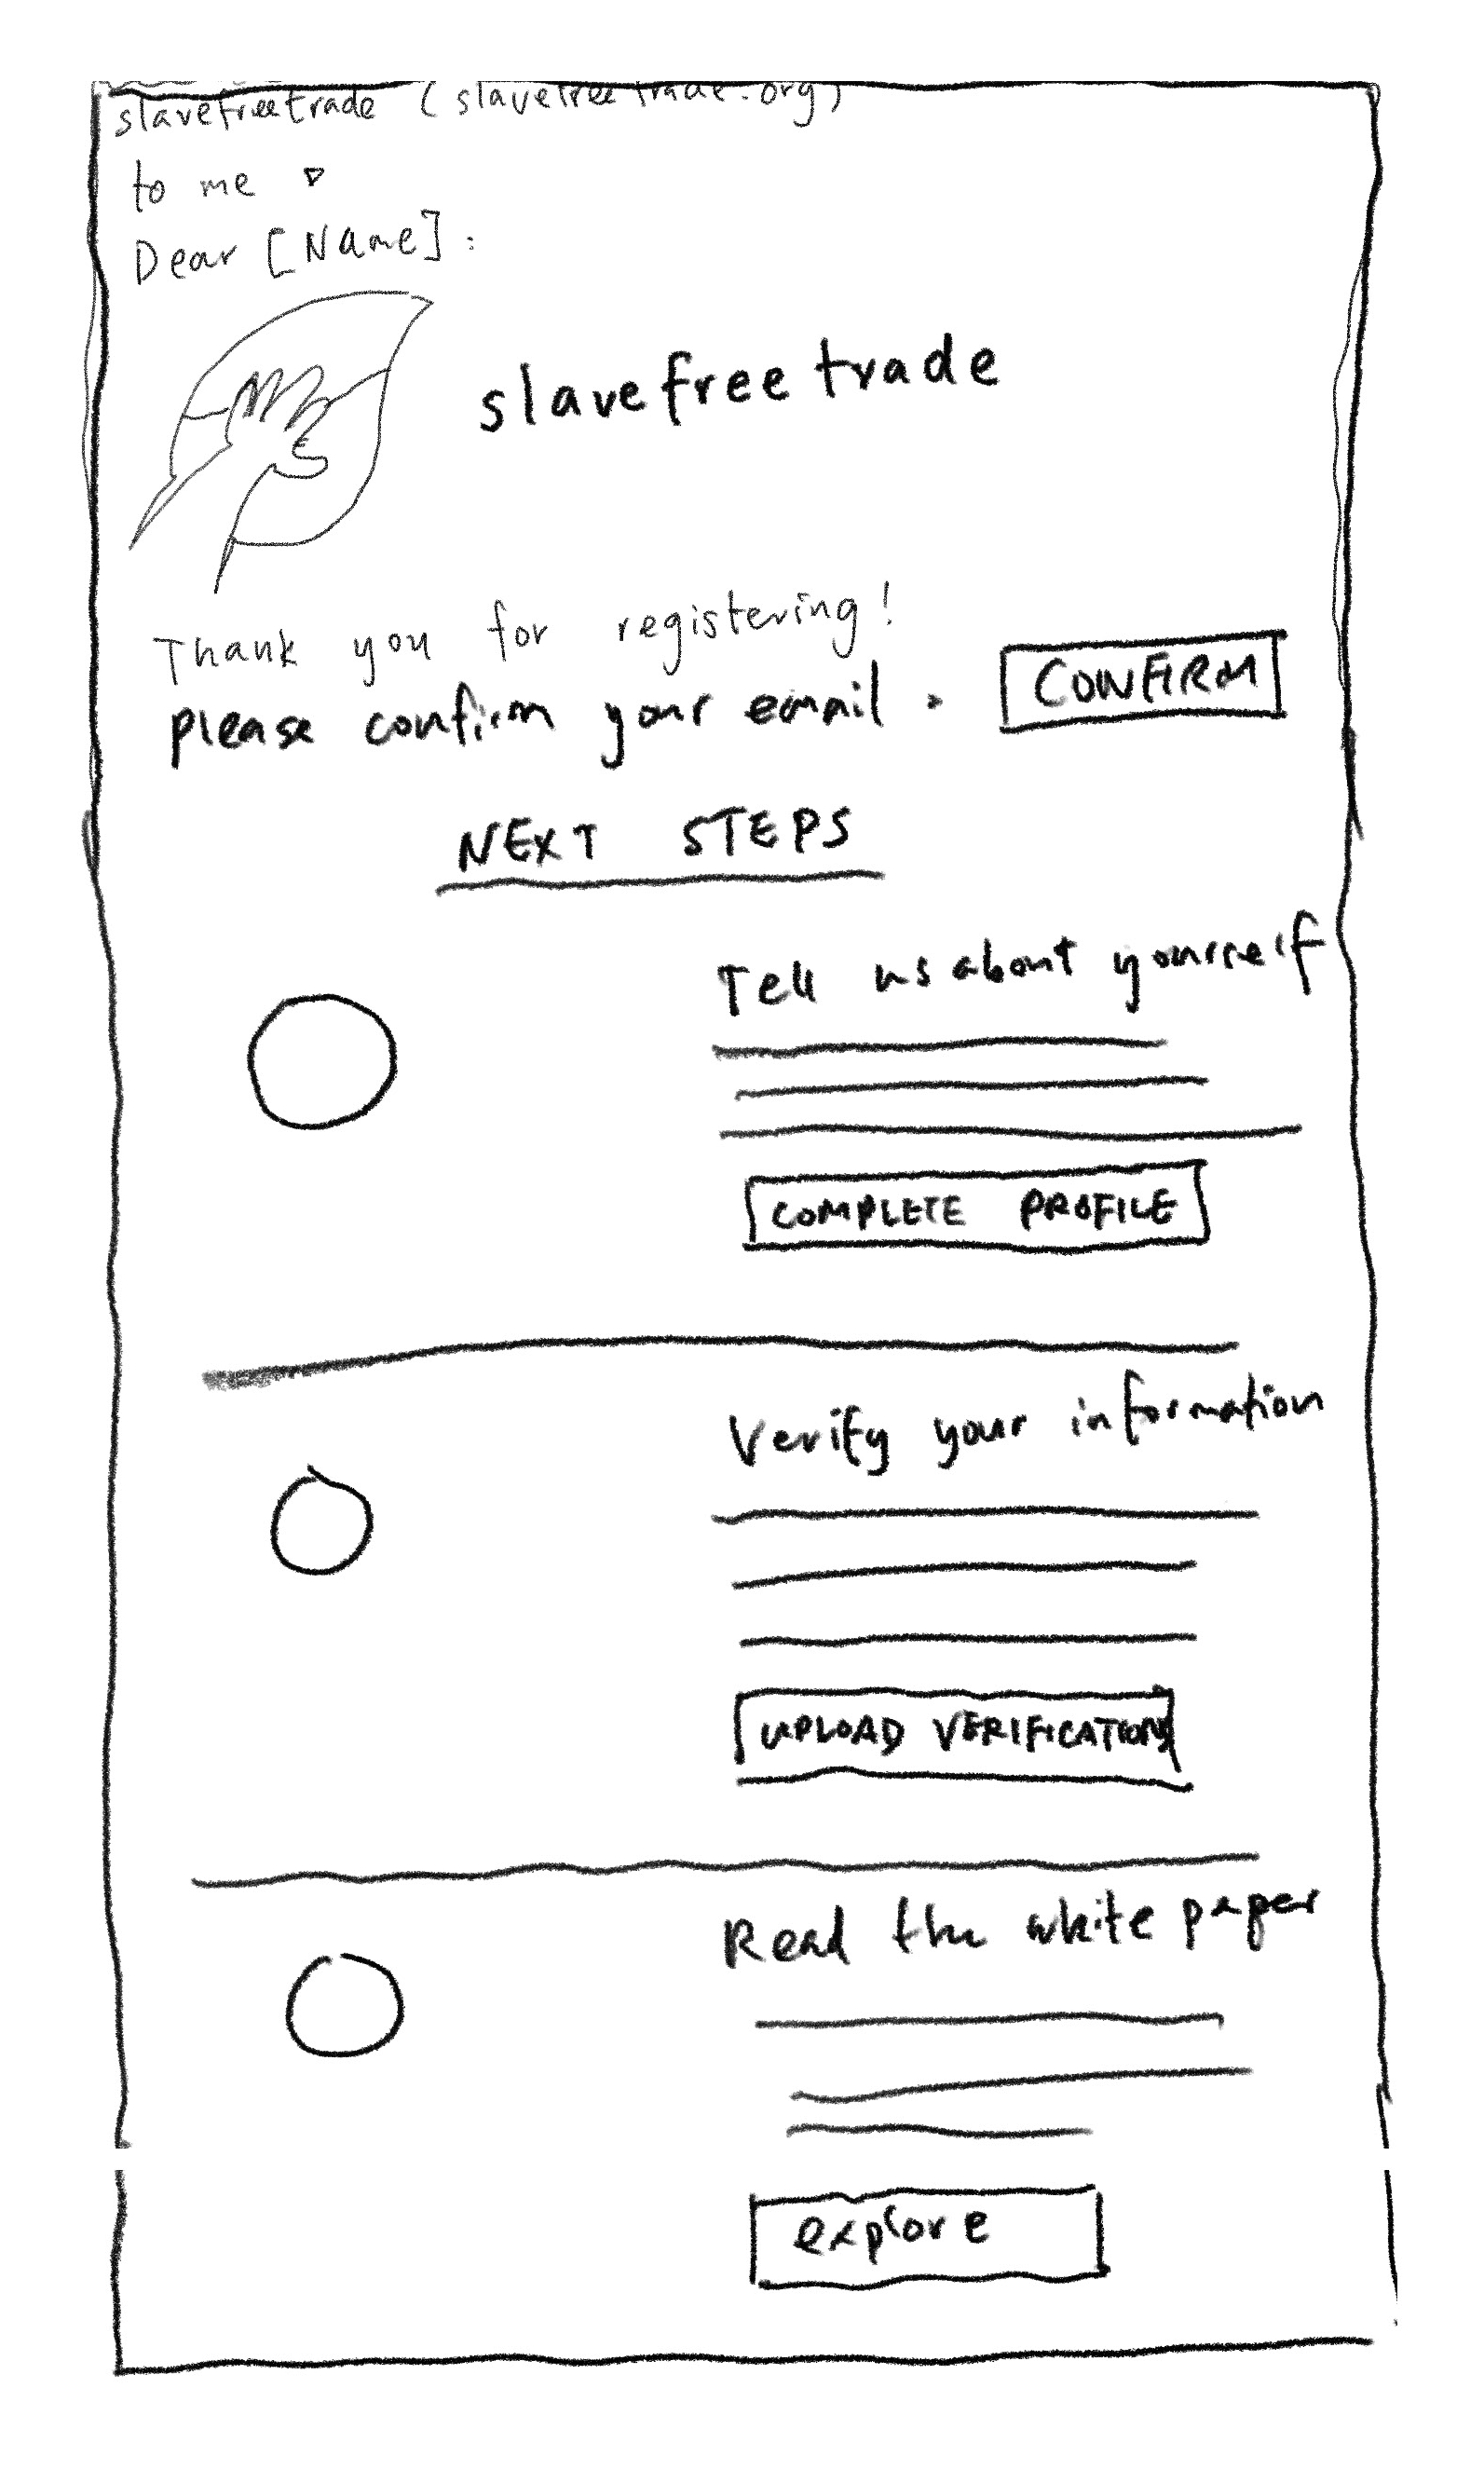 slavefreetrade (slavefreetrade.org)
to me
Dear [Name]:
slavefreetrade
Thank you for registering!
please confirm your email.
CONFIRM
NEXT STEPS
Tell us about yourself
COMPLETE PROFILE
Verify your information
UPLOAD VERIFICATIONS
Read the white paper
explore